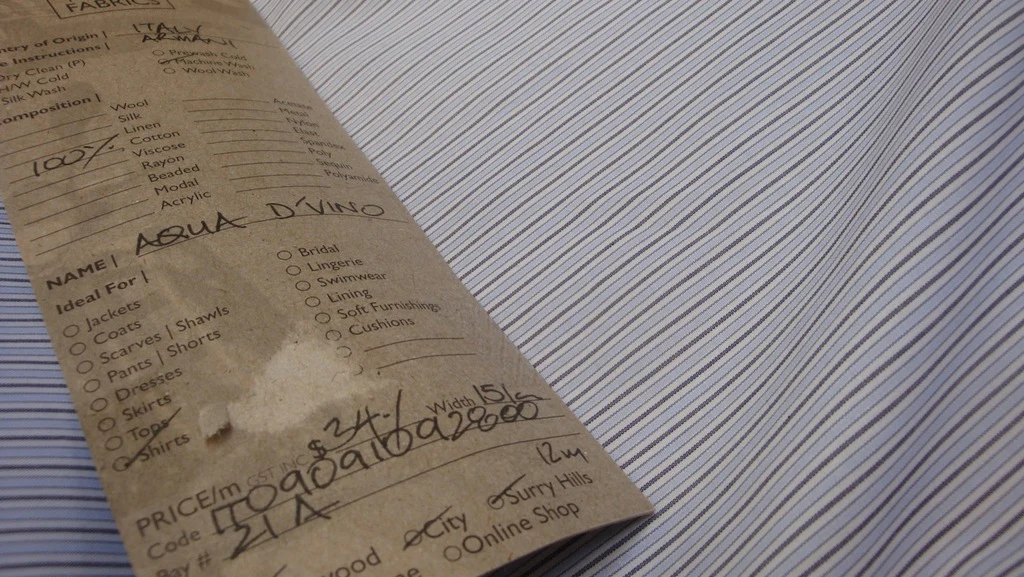 FABRICS
ntry of Origin | ITALY
e Instructions | ARMANI
Dry Clean (P)
H/W Cold
Silk Wash
Prewash Cold
Machine Wash
Wool Wash
omposition |
Wool
Silk
Linen
100% Cotton
Viscose
Rayon
Beaded
Modal
Acrylic
Polyamide
NAME | AQUA D'VINO
Ideal For |
Jackets
Coats
Scarves | Shawls
Pants | Shorts
Dresses
Skirts
Tops
Shirts
Bridal
Lingerie
Swimwear
Lining
Soft Furnishings
Cushions
PRICE/m GST INC $34-/ Width 151
Code
Bay # 21A
12m
ood City Surry Hills
ne Online Shop